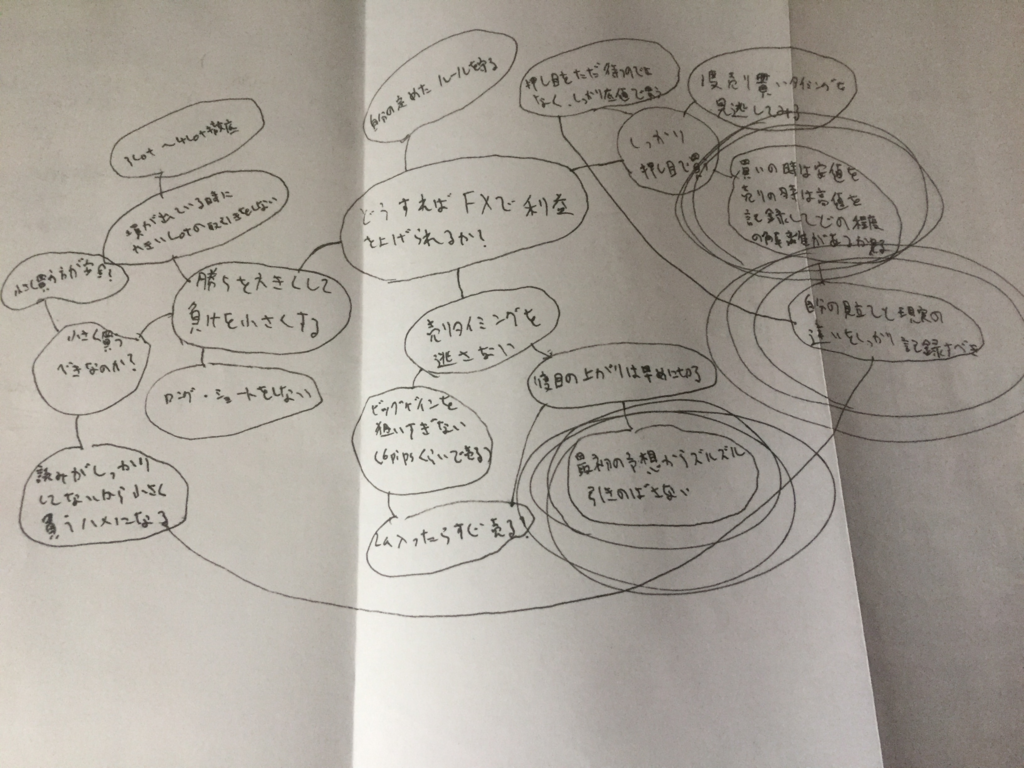 自分の定めたルールを守る
押し目をただ待つのでは
なく、しっかり底値で買う
1度売り買いタイミングを
見逃してみる
しっかり
押し目で買う
1Lot 〜4Lot徹底
買いの時は安値を
売りの時は高値を
記録してどの程度
の解離があるか見る
どうすれば FXで利益
を上げられるか?
出ている時に
大きいLotの取引きをしない
小さく買う方が吉!
勝ちを大きくして
負けを小さくする
自分の見立てと現実の
違いをしっかり 記録すべき
売りタイミングを
逃さない
小さく買う
べきなのか?
2度目の上がりは早めに切る
ロング・ショートをしない
ビッグゲインを
狙いすぎない
(6pipsくらいで売る)
最初の予想からズルズル
引きのばさない
読みがしっかり
してないから小さく
買うハメになる
入ったらすぐ売る!